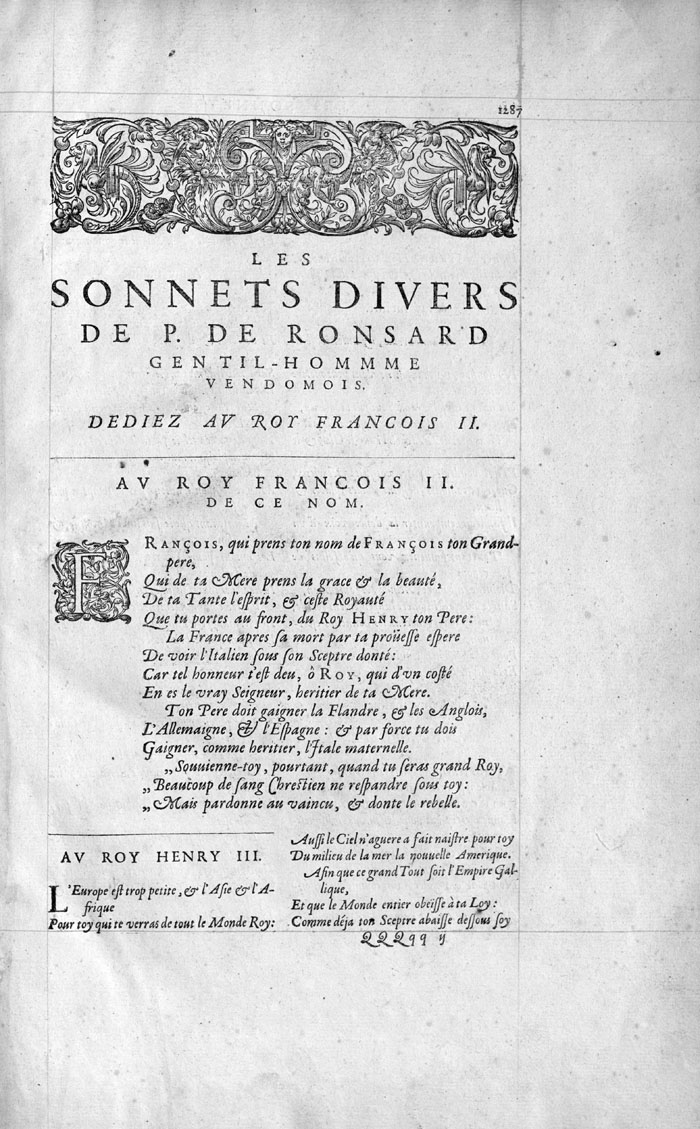 1287
LES
SONNETS DIVERS
DE P. DE RONSARD
GENTIL-HOMMME
VENDOMOIS.
DEDIEZ AV ROY FRANCOIS II.
AV ROY FRANCOIS II.
DE CE NOM.
FRANÇOIS, qui prens ton nom de FRANÇOIS ton Grand-
pere,
Qui de ta Mere prens la grace & la beauté,
De ta Tante l'esprit, & ceste Royauté
Que tu portes au front, du Roy HENRY ton Pere:
La France apres sa mort par ta proüesse espere
De voir l'Italien sous son Sceptre donté:
Car tel honneur t'est deu, ô ROY, qui d'vn costé
En es le vray Seigneur, heritier de ta Mere.
Ton Pere doit gaigner la Flandre, & les Anglois,
L'Allemaigne, & l'Espagne: & par force tu dois
Gaigner, comme heritier, l'Itale maternelle.
„Souuienne-toy, pourtant, quand tu seras grand Roy,
„Beaucoup de sang Chrestien ne respandre sous toy:
„Mais pardonne au vaincu, & donte le rebelle.
AV ROY HENRY III.
L'Europe est trop petite, & l'Asie & l'A-
frique
Pour toy qui te verras de tout le Monde Roy:
Aussi le Ciel n'aguere a fait naistre pour toy
Du milieu de la mer la nouuelle Amerique.
Afin que ce grand Tout soit l'Empire Gal-
lique,
Et que le Monde entier obeïsse à ta Loy:
Comme déja ton Sceptre abaisse dessous soy
QQQqq y